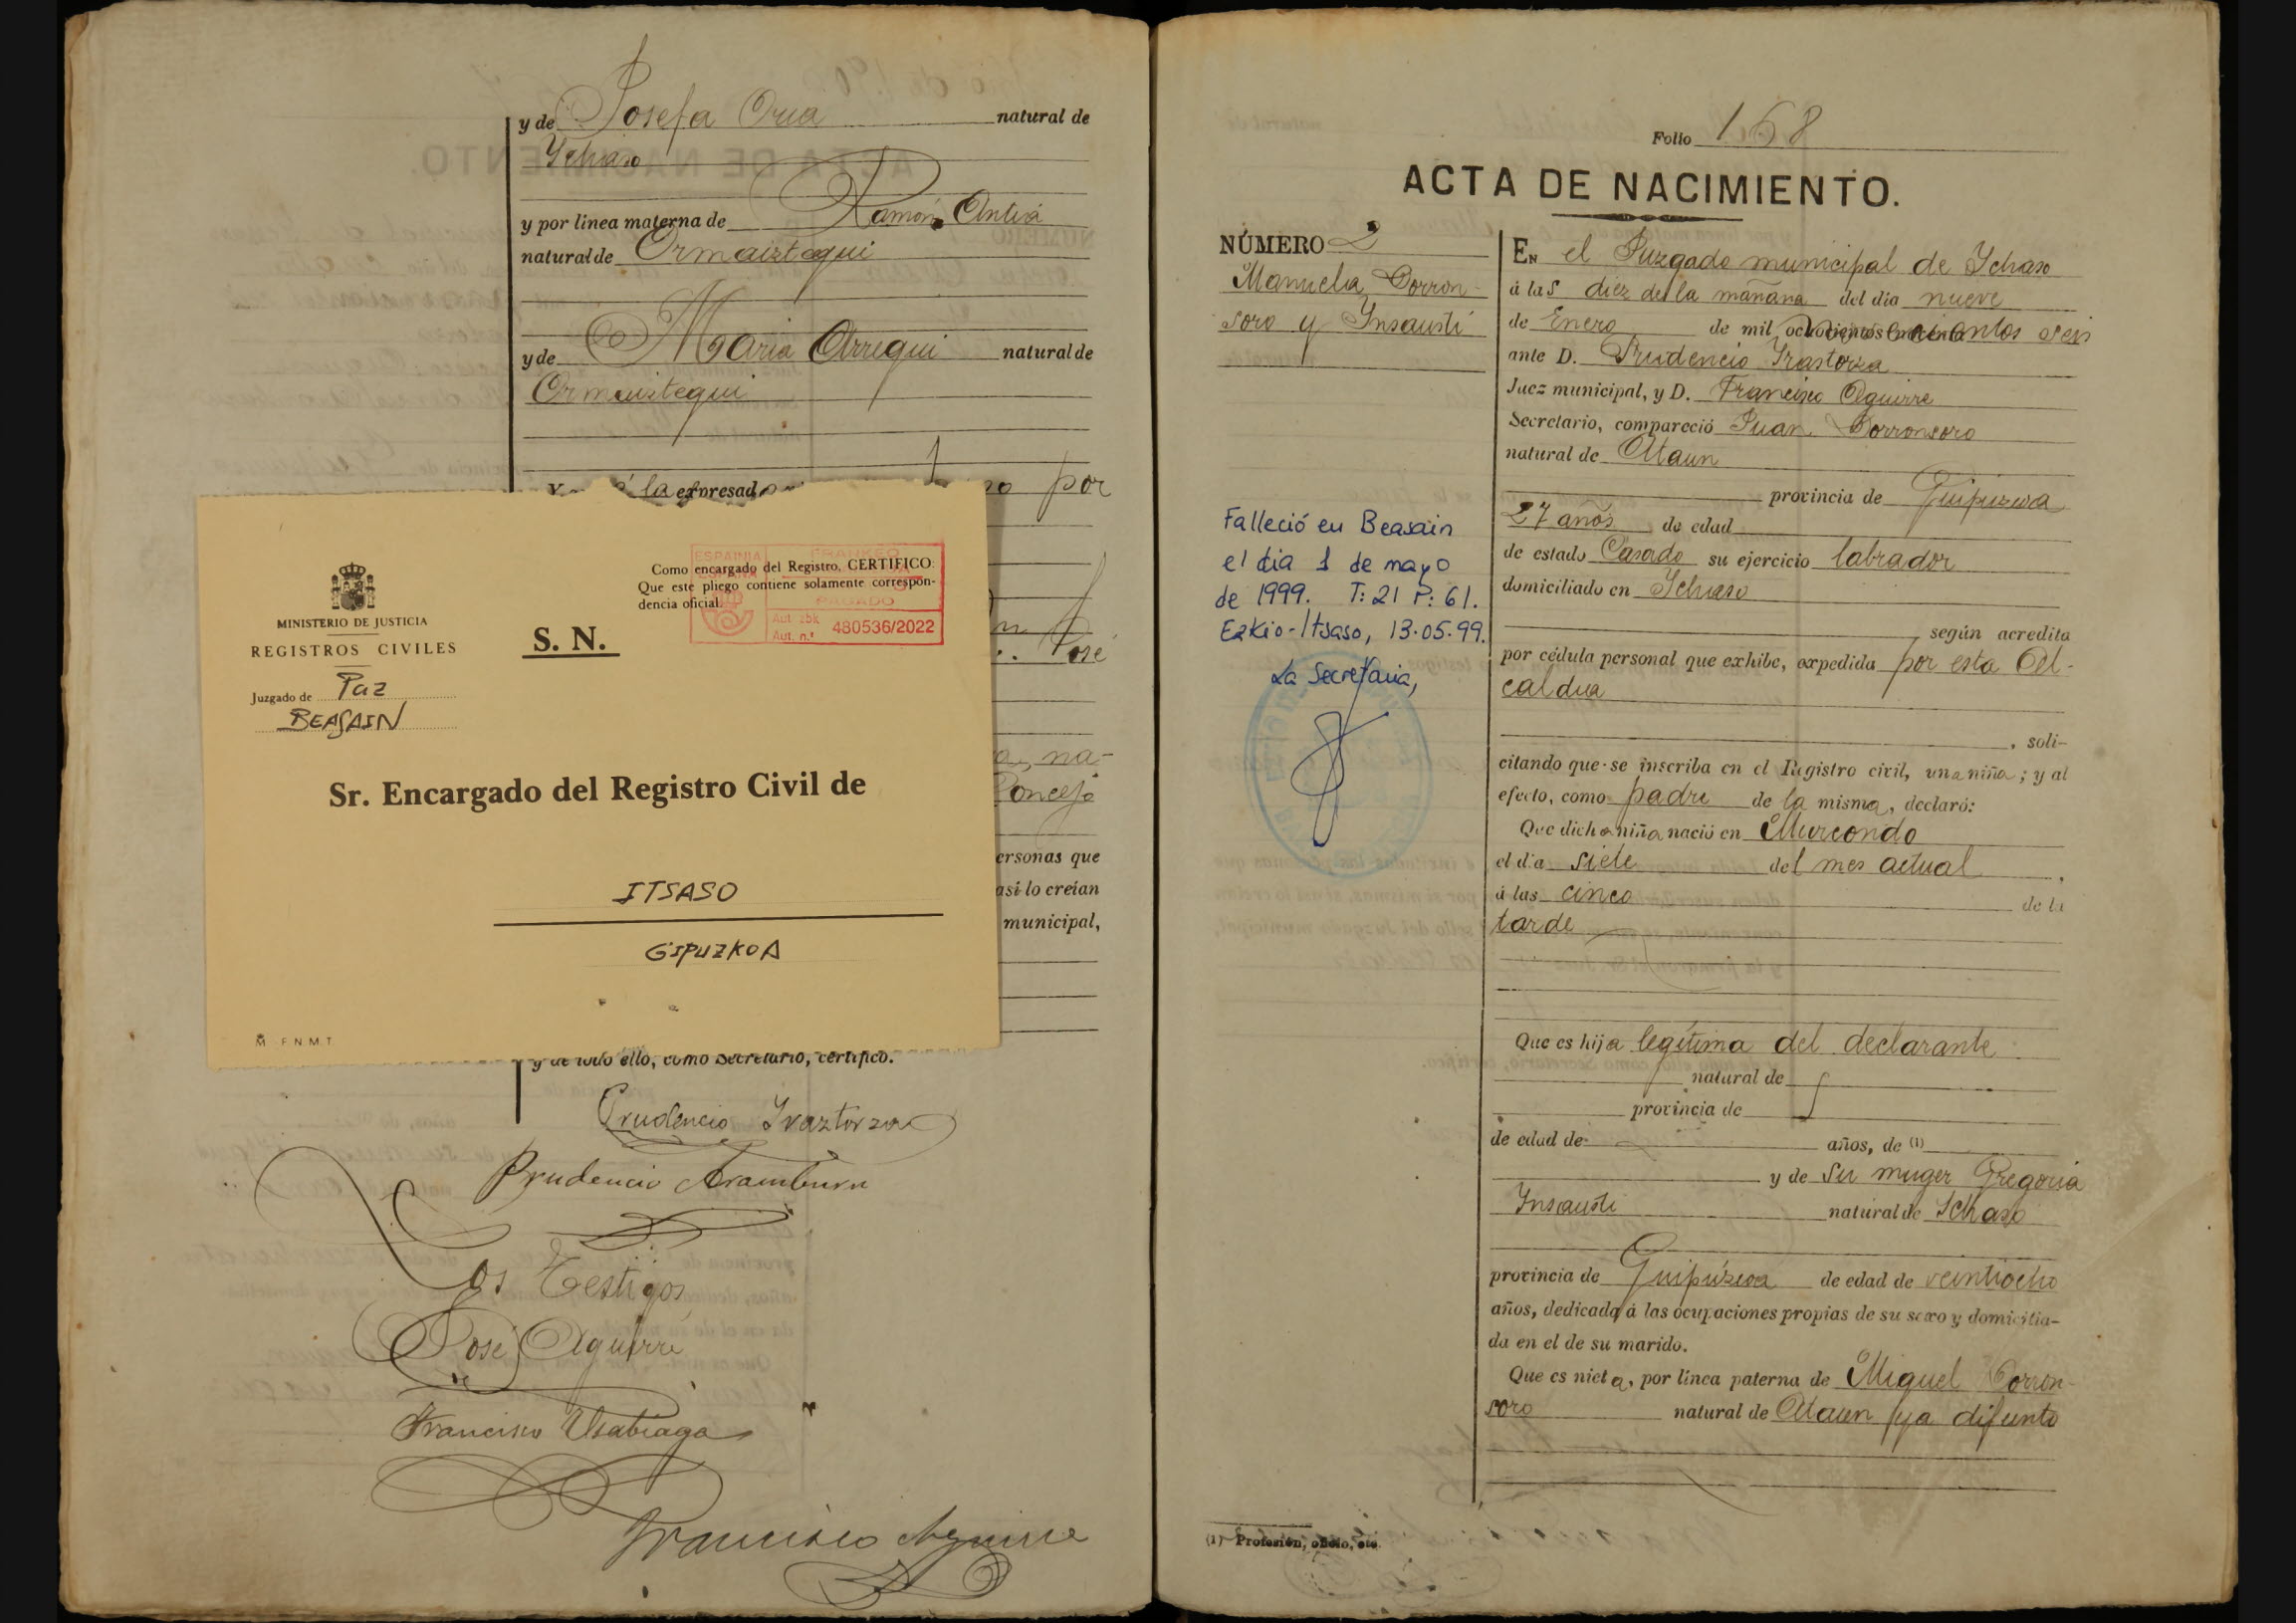 y de Josefa Oria natural de
Ychaso
y por linea materna de Ramón Antia
natural de Ormaiztegui
y de Maria Arregui natural de
Ormaiztegui
la expresad por
José
na-
Concejo
ersonas que
asi lo creian
municipal,
MINISTERIO DE JUSTICIA
REGISTROS CIVILES
Juzgado de Paz
BEASAIN
S. N.
Como encargado del Registro, CERTIFICO:
Que este pliego contiene solamente correspon-
dencia oficial.
ESPAINIA
ESPAÑA
FRANKEO
PAGADO
Aut. zbk
Aut. n.º 480536/2022
Sr. Encargado del Registro Civil de
ITSASO
GIPUZKOA
F.N.M.T.
y de todo ello, como Secretario, certifico.
Prudencio Yraztorza
Prudencio Aramburu
Los Testigos
José Aguirre
Francisco Usabiaga
Francisco Aguirre
Folio 168
ACTA DE NACIMIENTO.
NÚMERO 2
Manuela Dorron-
soro y Insausti
Falleció en Beasain
el dia 1 de mayo
de 1999. T: 21 P: 61.
Ezkio-Itsaso, 13.05.99.
La Secretaria,
EN el Juzgado municipal de Ychaso
á las diez de la mañana del dia nueve
de Enero de mil novecientos seis
ante D. Prudencio Yrastorza
Juez municipal, y D. Francisco Aguirre
Secretario, compareció Juan Dorronsoro
natural de Ataun
provincia de Guipuzcoa
27 años de edad
de estado Casado su ejercicio labrador
domiciliado en Ychaso
según acredita
por cédula personal que exhibe, expedida por esta Al-
caldia
, soli-
citando que se inscriba en el Registro civil, una niña; y al
efecto, como padre de la misma, declaró:
Que dicha niña nació en Murcondo
el dia siete del mes actual,
á las cinco de la
tarde
Que es hija legítima del declarante
natural de
provincia de
de edad de años, de (1)
y de su muger Gregoria
Insausti natural de Ychaso
provincia de Guipúzcoa de edad de veintiocho
años, dedicada á las ocupaciones propias de su sexo y domicilia-
da en el de su marido.
Que es nieta, por linea paterna de Miguel Dorron-
soro natural de Ataun ya difunto
(1) Profesión, oficio, etc.